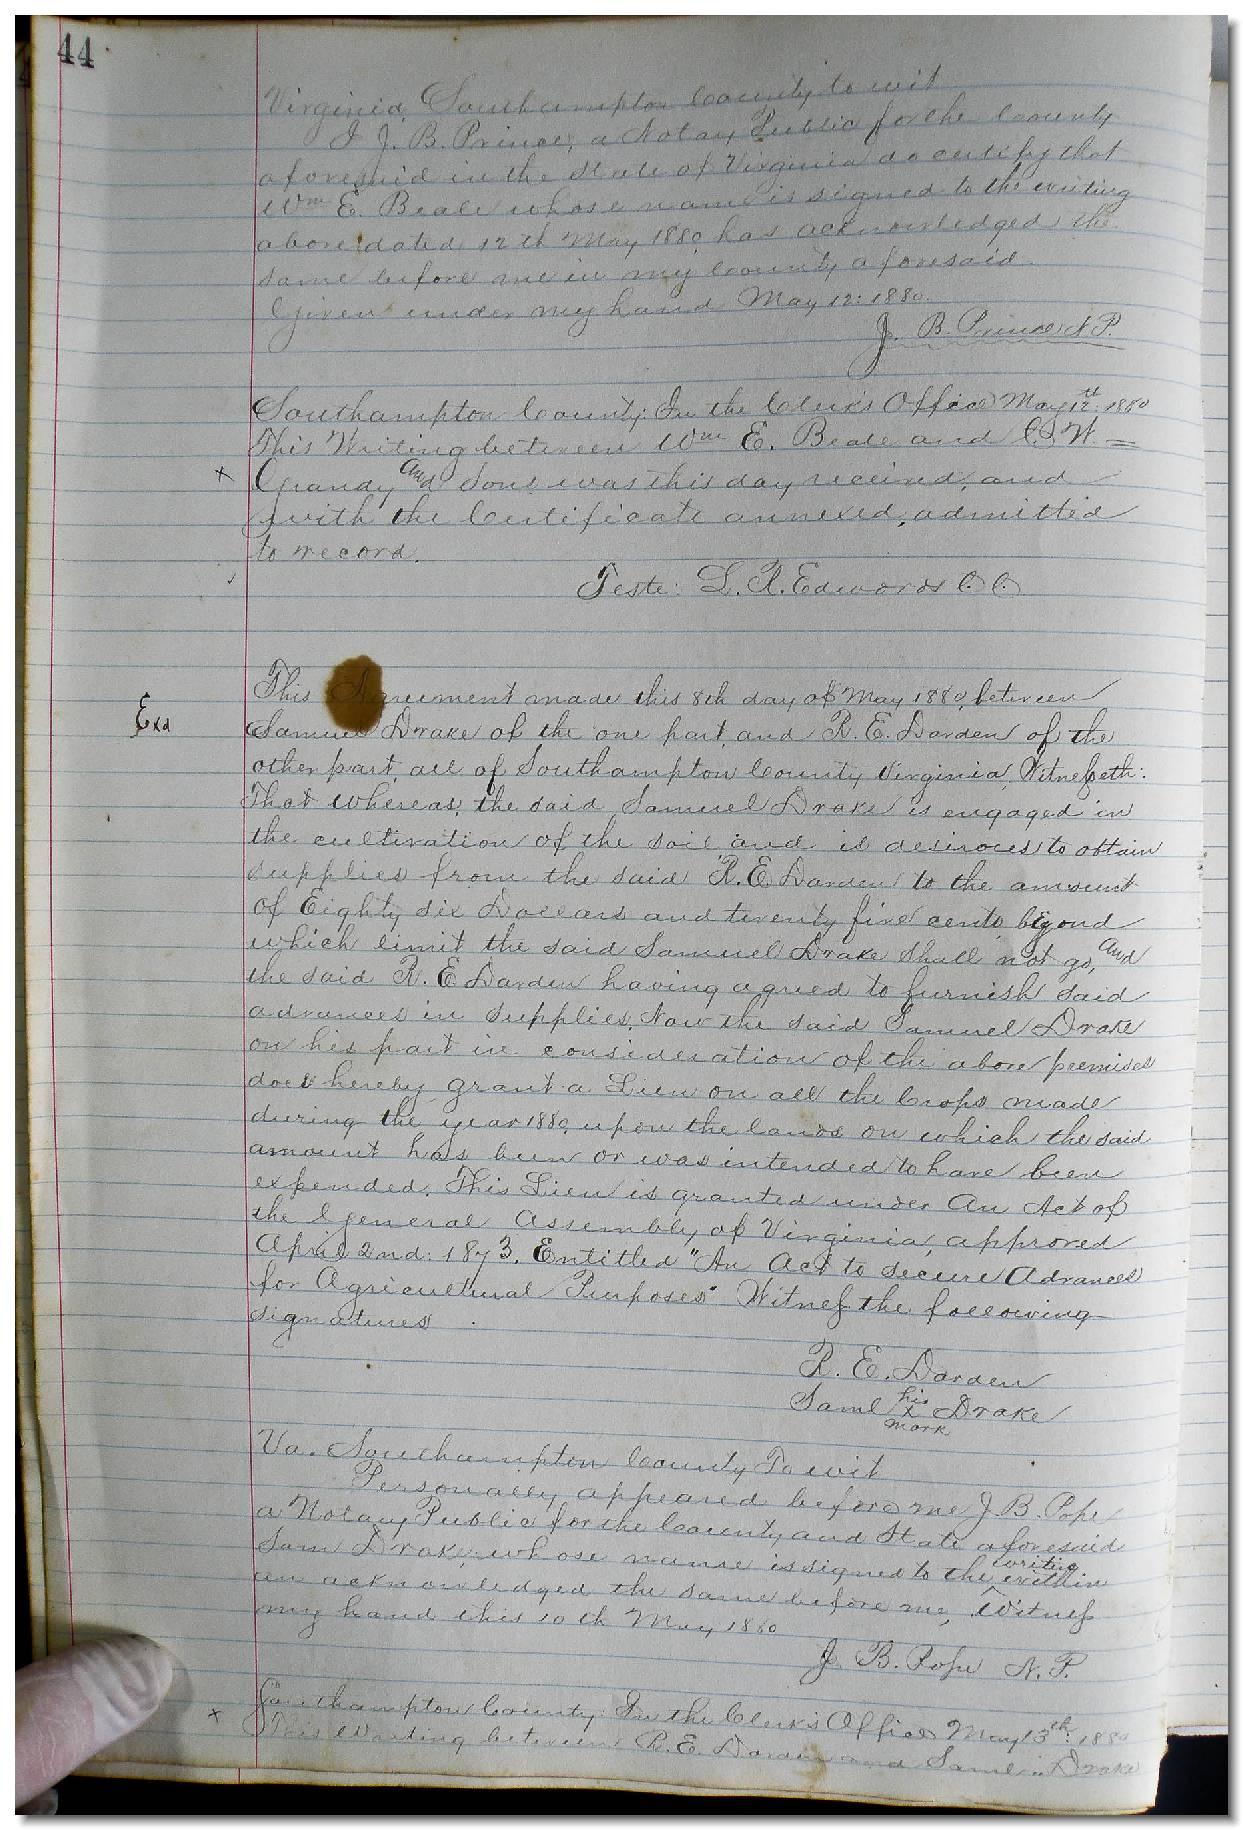 44
Virginia, Southampton County to wit
I J. B. Prince, a Notary Public for the County
aforesaid in the State of Virginia do certify that
Wm E. Beale whose name is signed to the writing
above dated 12th May 1880 has acknowledged the
same before me in my County aforesaid.
Given under my hand May 12: 1880.
J. B. Prince N.P.
Southampton County: In the Clerk's Office May 12th: 1880
This Writing between Wm E. Beale and C. W. =
x Grandy and Sons was this day received, and
with the Certificate annexed, admitted
to record.
Teste: L. R. Edwards C.C.
This Agreement made this 8th day of May 1880, between
Exd
Samuel Drake of the one part, and R. E. Darden of the
other part, all of Southampton County Virginia, Witnesseth:
That whereas, the said Samuel Drake is engaged in
the cultivation of the soil and is desirous to obtain
supplies from the said R. E. Darden to the amount
of Eighty six Dollars and twenty five cents beyond
which limit the said Samuel Drake shall not go, and
the said R. E. Darden having agreed to furnish said
advances in supplies, Now the said Samuel Drake
on his part in consideration of the above premises
does hereby grant a Lien on all the Crops made
during the year 1880, upon the lands on which the said
amount has been or was intended to have been
expended. This Lien is granted under An Act of
the General Assembly of Virginia, approved
April 2nd: 1873. Entitled "An Act to secure Advances
for Agricultural Purposes" Witness the following
signatures
R. E. Darden
Saml his x mark Drake
Va. Southampton County To wit
Personally appeared before me J. B. Pope
a Notary Public for the County and State aforesaid
Sam Drake, whose name is signed to the writing within
an acknowledged the same before me, Witness
my hand this 10th May 1880
J. B. Pope N. P.
x Southampton County: In the Clerk's Office May 13th: 1880
This Writing between R. E. Darden and Saml. Drake